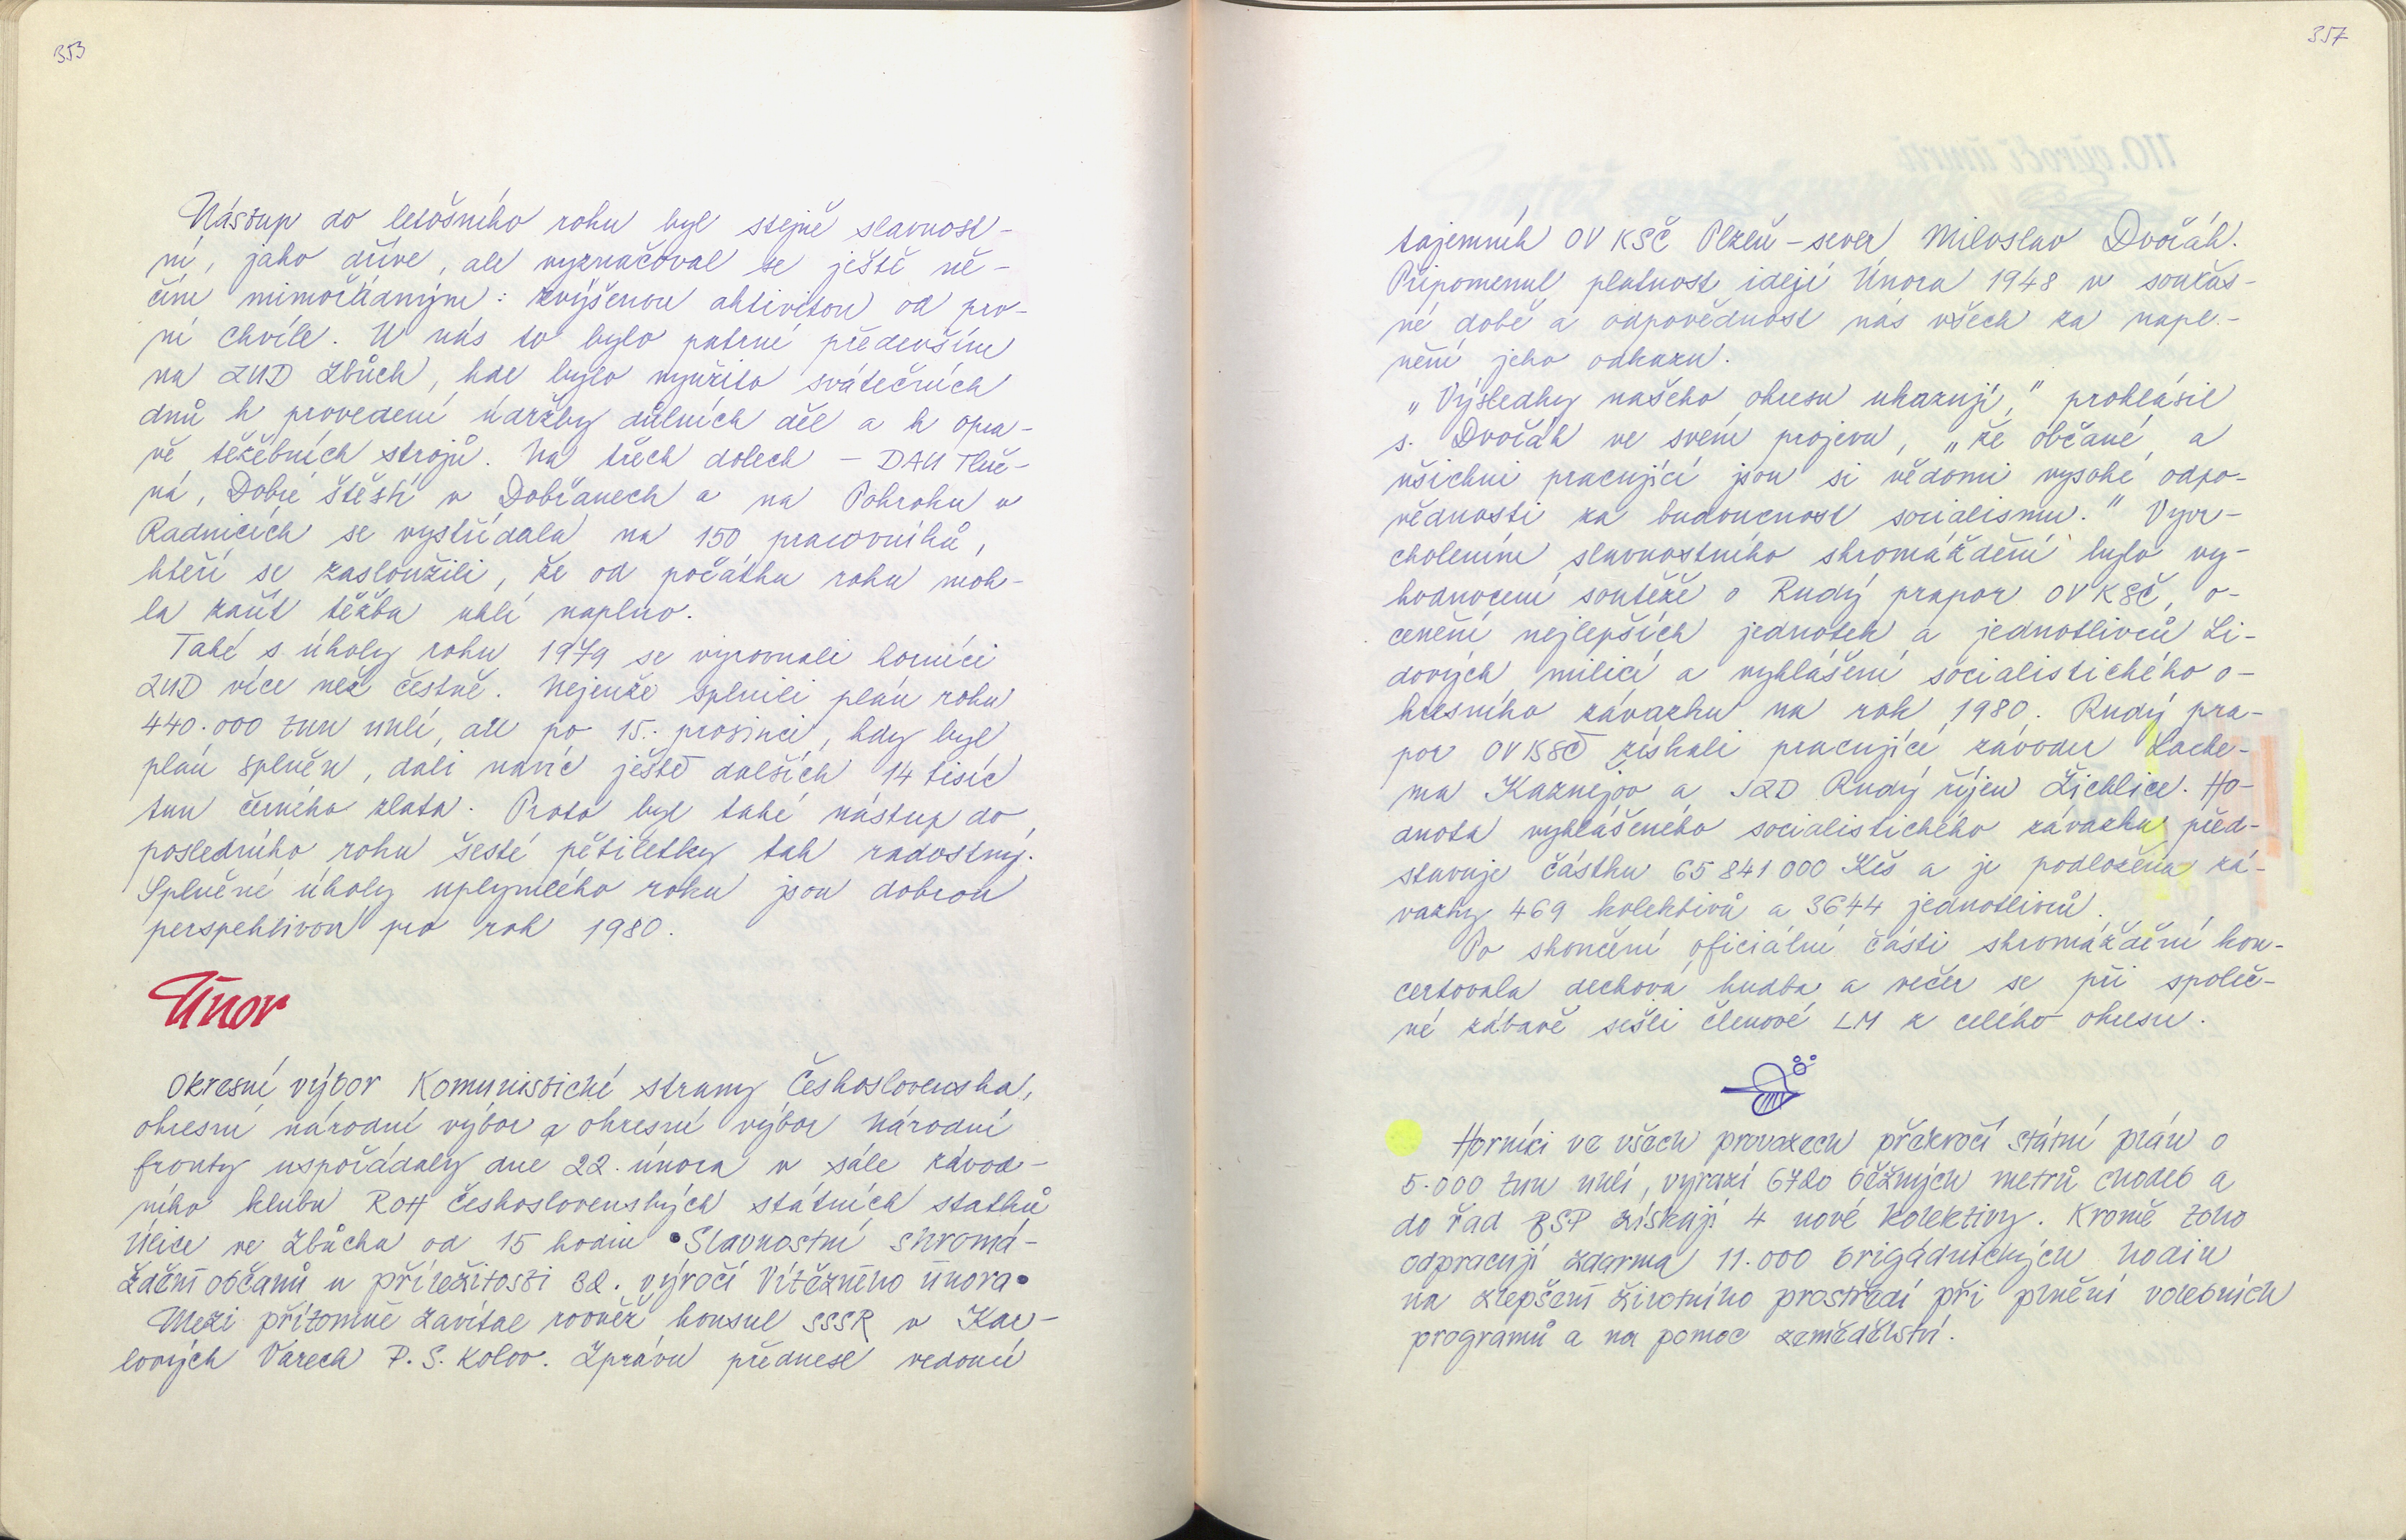 353
Nástup do letošního roku byl stejně slavnost-
ní, jako dříve, ale vyznačoval se ještě ně-
čím mimořádným: zvýšenou aktivitou od prv-
ní chvíle. U nás to bylo patrné především
na ZUD Zbůch, kde bylo využito svátečních
dnů k provedení údržby důlních děl a k opra-
vě těžebních strojů. Na třech dolech – DAU Tluč-
ná, Dobré štěstí v Dobřanech a na Pokroku v
Radnicích se vystřídala na 150 pracovníků,
kteří se zasloužili, že od počátku roku moh-
la začít těžba uhlí naplno.
Také s úkoly roku 1979 se vyrovnali horníci
ZUD více než čestně. Nejenže splnili plán roku
440.000 tun uhlí, ale po 15. prosinci, kdy byl
plán splněn, dali navíc ještě dalších 14 tisíc
tun černého zlata. Proto byl také nástup do
posledního roku šesté pětiletky tak radostný.
Splněné úkoly uplynulého roku jsou dobrou
perspektivou pro rok 1980.
Únor
Okresní výbor Komunistické strany Československa,
okresní národní výbor a okresní výbor Národní
fronty uspořádaly dne 22. února v sále závod-
ního klubu ROH Československých státních statků
Úlice ve Zbůchu od 15 hodin • Slavnostní shromá-
ždění občanů u příležitosti 32. výročí Vítězného února •
Mezi přítomné zavítal rovněž konsul SSSR v Kar-
lových Varech P. S. Kolov. Zprávu přednesl vedoucí
357
tajemník OV KSČ Plzeň – sever Miloslav Dvořák.
Připomenul platnost idejí Února 1948 v součas-
né době a odpovědnost nás všech za napl-
nění jeho odkazu.
„Výsledky našeho okresu ukazují," prohlásil
s. Dvořák ve svém projevu, „že občané a
všichni pracující jsou si vědomi vysoké odpo-
vědnosti za budoucnost socialismu." Vyvr-
cholením slavnostního shromáždění bylo vy-
hodnocení soutěže o Rudý prapor OV KSČ, o-
cenění nejlepších jednotek a jednotlivců Li-
dových milicí a vyhlášení socialistického o-
kresního závazku na rok 1980. Rudý pra-
por OV KSČ získali pracující závodu Lache-
ma Kaznějov a JZD Rudý říjen Žichlice. Ho-
dnota vyhlášeného socialistického závazku před-
stavuje částku 65 841 000 Kčs a je podložena zá-
vazky 469 kolektivů a 3644 jednotlivců.
Po skončení oficiální části shromáždění kon-
certovala dechová hudba a večer se při společ-
né zábavě sešli členové LM z celého okresu.
Horníci ve všech provozech překročí státní plán o
5.000 tun uhlí, vyrazí 6720 běžných metrů chodeb a
do řad BSP získají 4 nové kolektivy. Kromě toho
odpracují zdarma 11.000 brigádnických hodin
na zlepšení životního prostředí při plnění volebních
programů a na pomoc zemědělství.